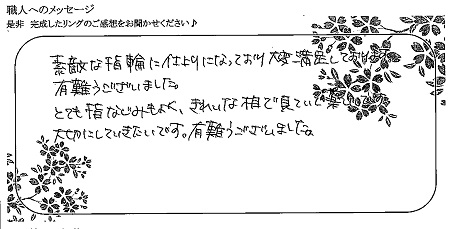 職人へのメッセージ
是非 完成したリングのご感想をお聞かせください♪
素敵な指輪に仕上りになっており大変満足しております。
有難うございました。
とても指なじみもよく、きれいな相で見ていて楽しいです。
大切にしていきたいです。有難うございました。